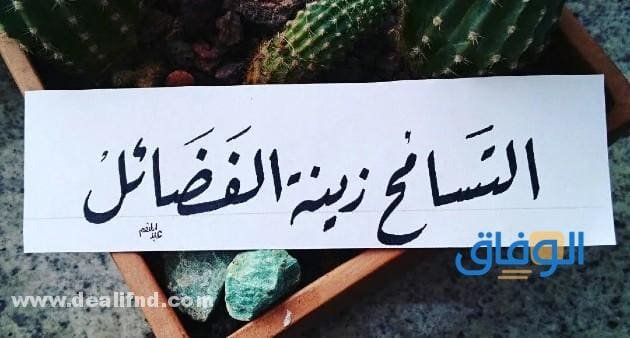 التسامح زينة الفضائل
عبدالمنعم
الوفاق
www.dealifnd.com